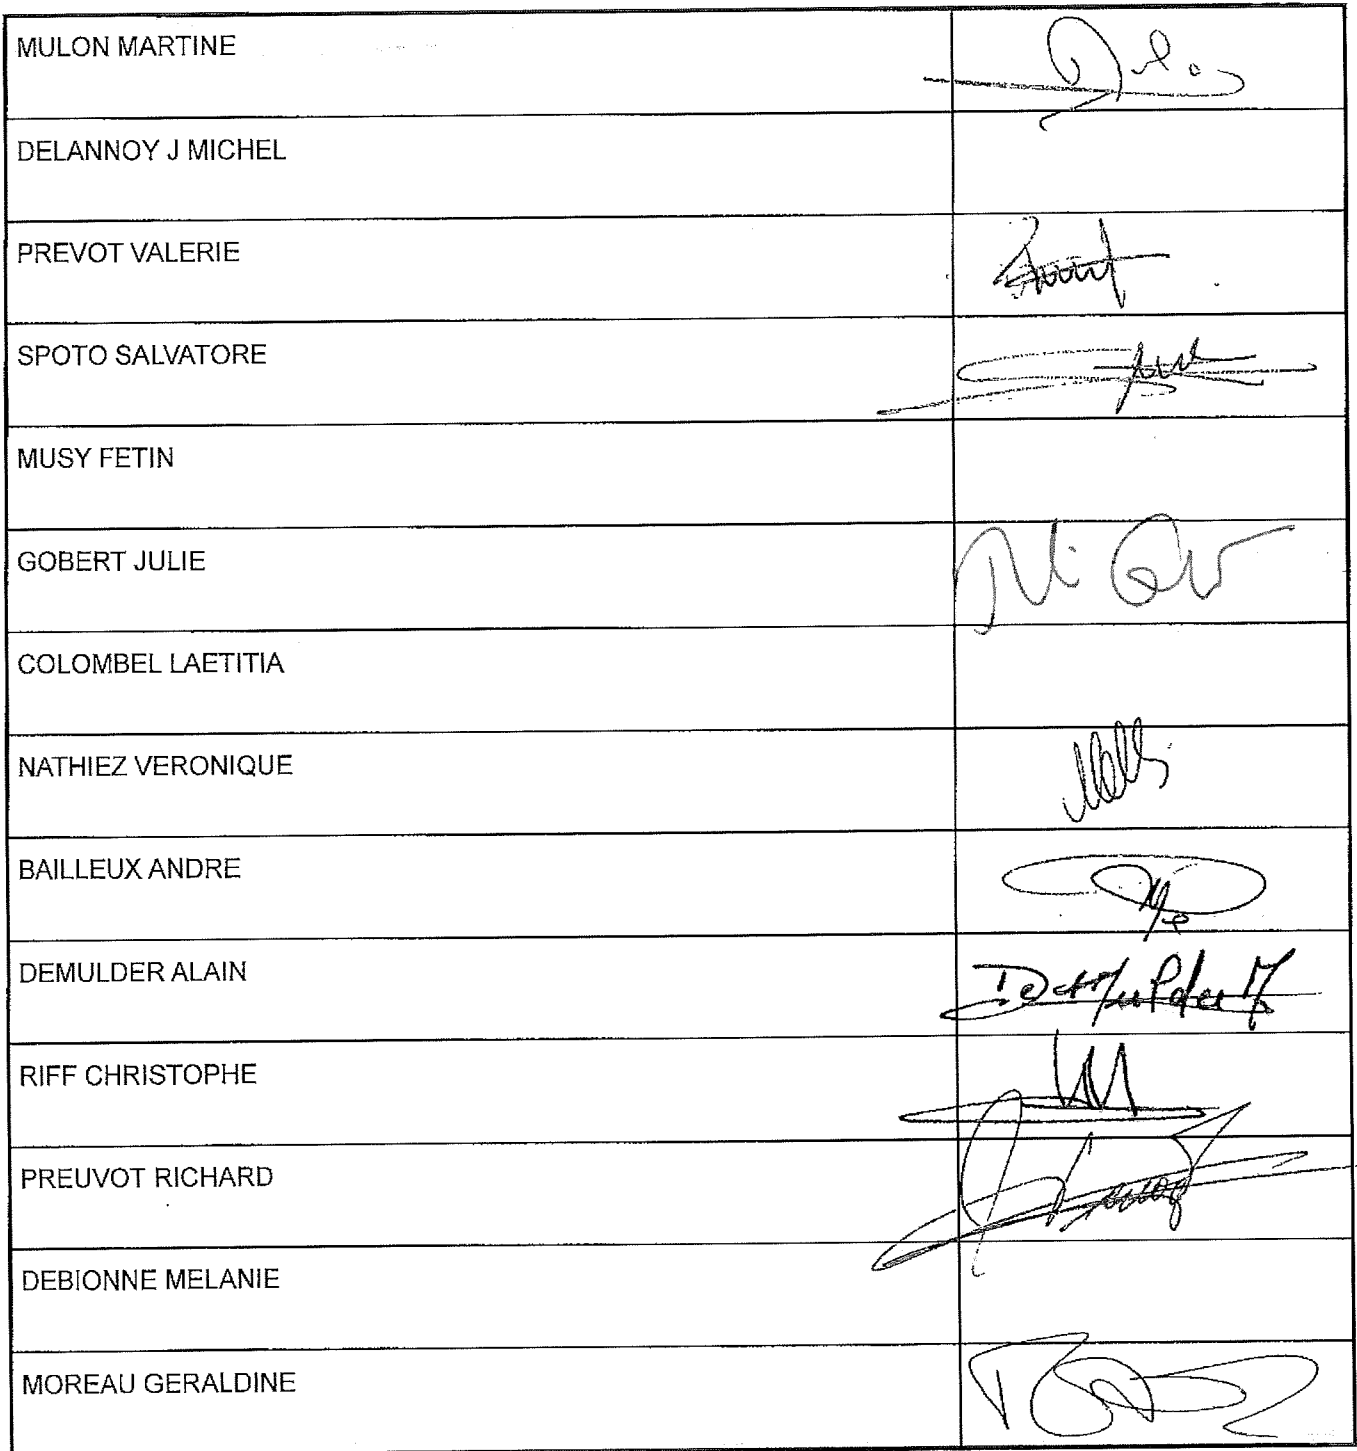 MULON MARTINE
DELANNOY J MICHEL
PREVOT VALERIE
SPOTO SALVATORE
MUSY FETIN
GOBERT JULIE
COLOMBEL LAETITIA
NATHIEZ VERONIQUE
BAILLEUX ANDRE
DEMULDER ALAIN
RIFF CHRISTOPHE
PREUVOT RICHARD
DEBIONNE MELANIE
MOREAU GERALDINE